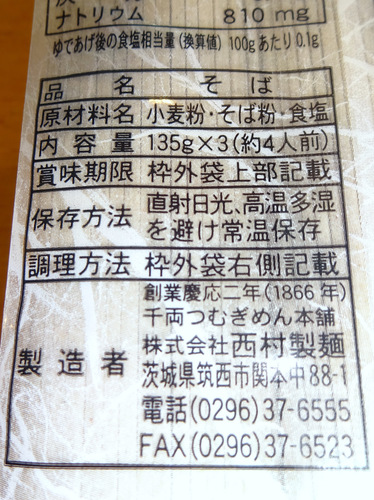 ナトリウム 810 mg
ゆであげ後の食塩相当量(換算値) 100gあたり 0.1g
品名 そば
原材料名 小麦粉・そば粉・食塩
内容量 135g×3(約4人前)
賞味期限 枠外袋上部記載
保存方法 直射日光、高温多湿
を避け常温保存
調理方法 枠外袋右側記載
製造者 創業慶応二年(1866年)
千両つむぎめん本舗
株式会社西村製麺
茨城県筑西市関本中88-1
電話(0296)37-6555
FAX(0296)37-6523